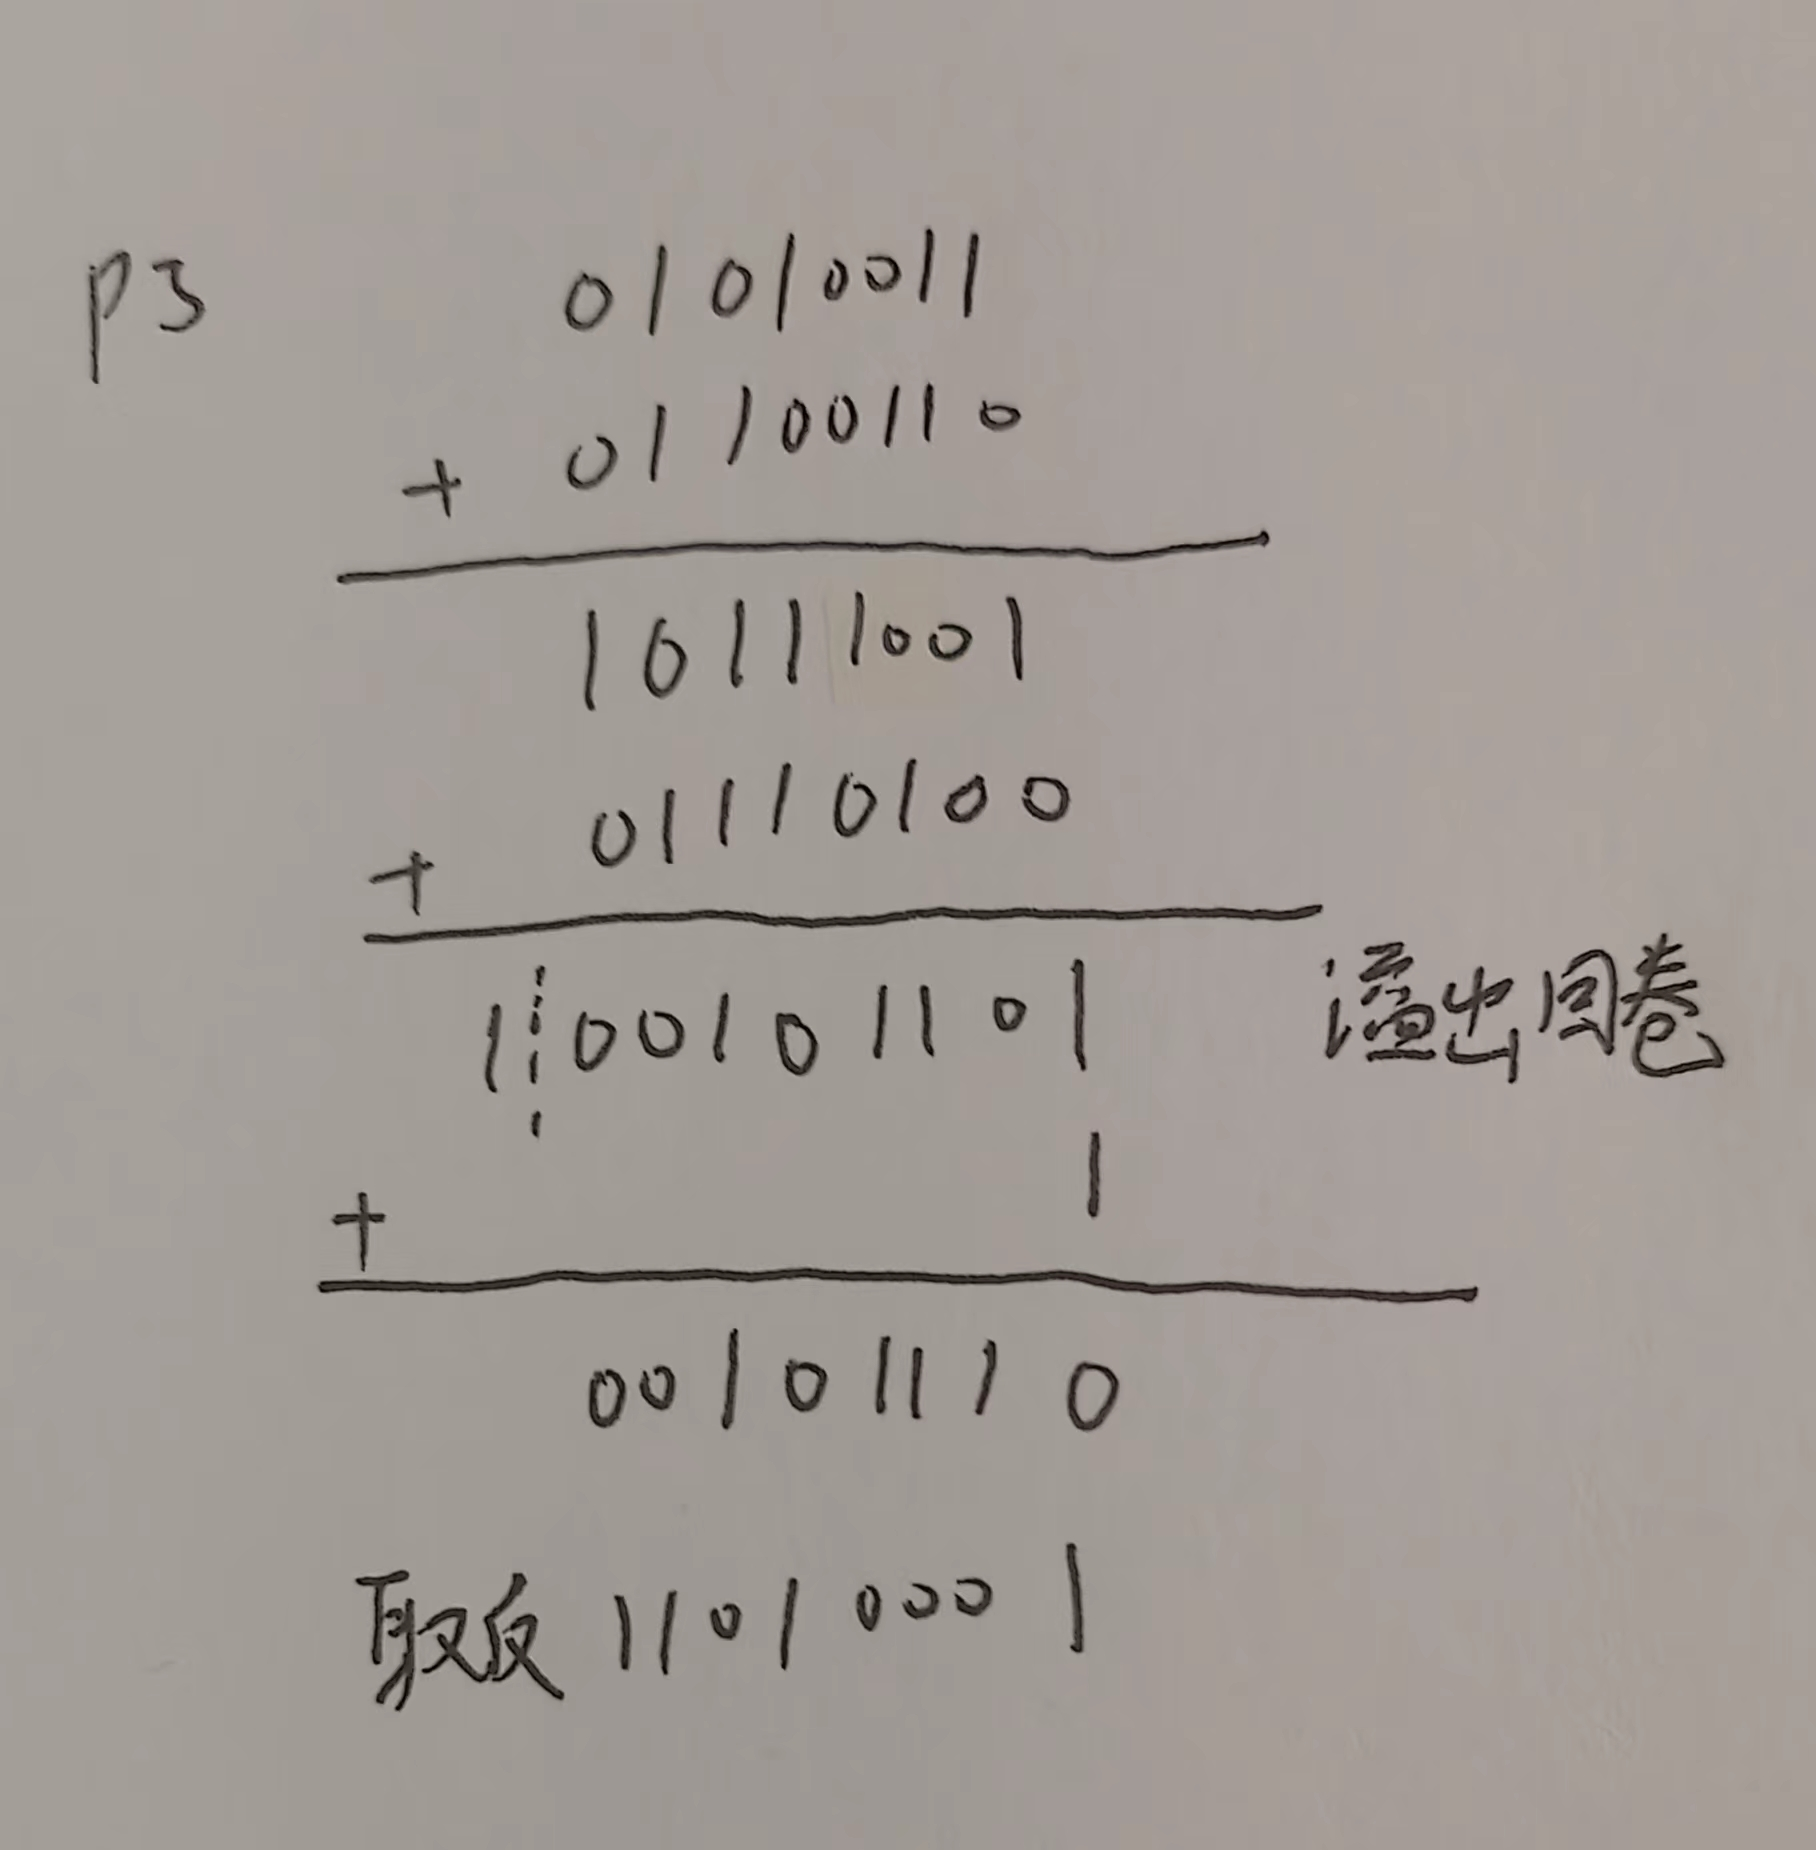 P3 01010011
+ 01100110
10111001
+ 01110100
1 00101101 溢出回卷
+ 1
00101110
取反 11010001